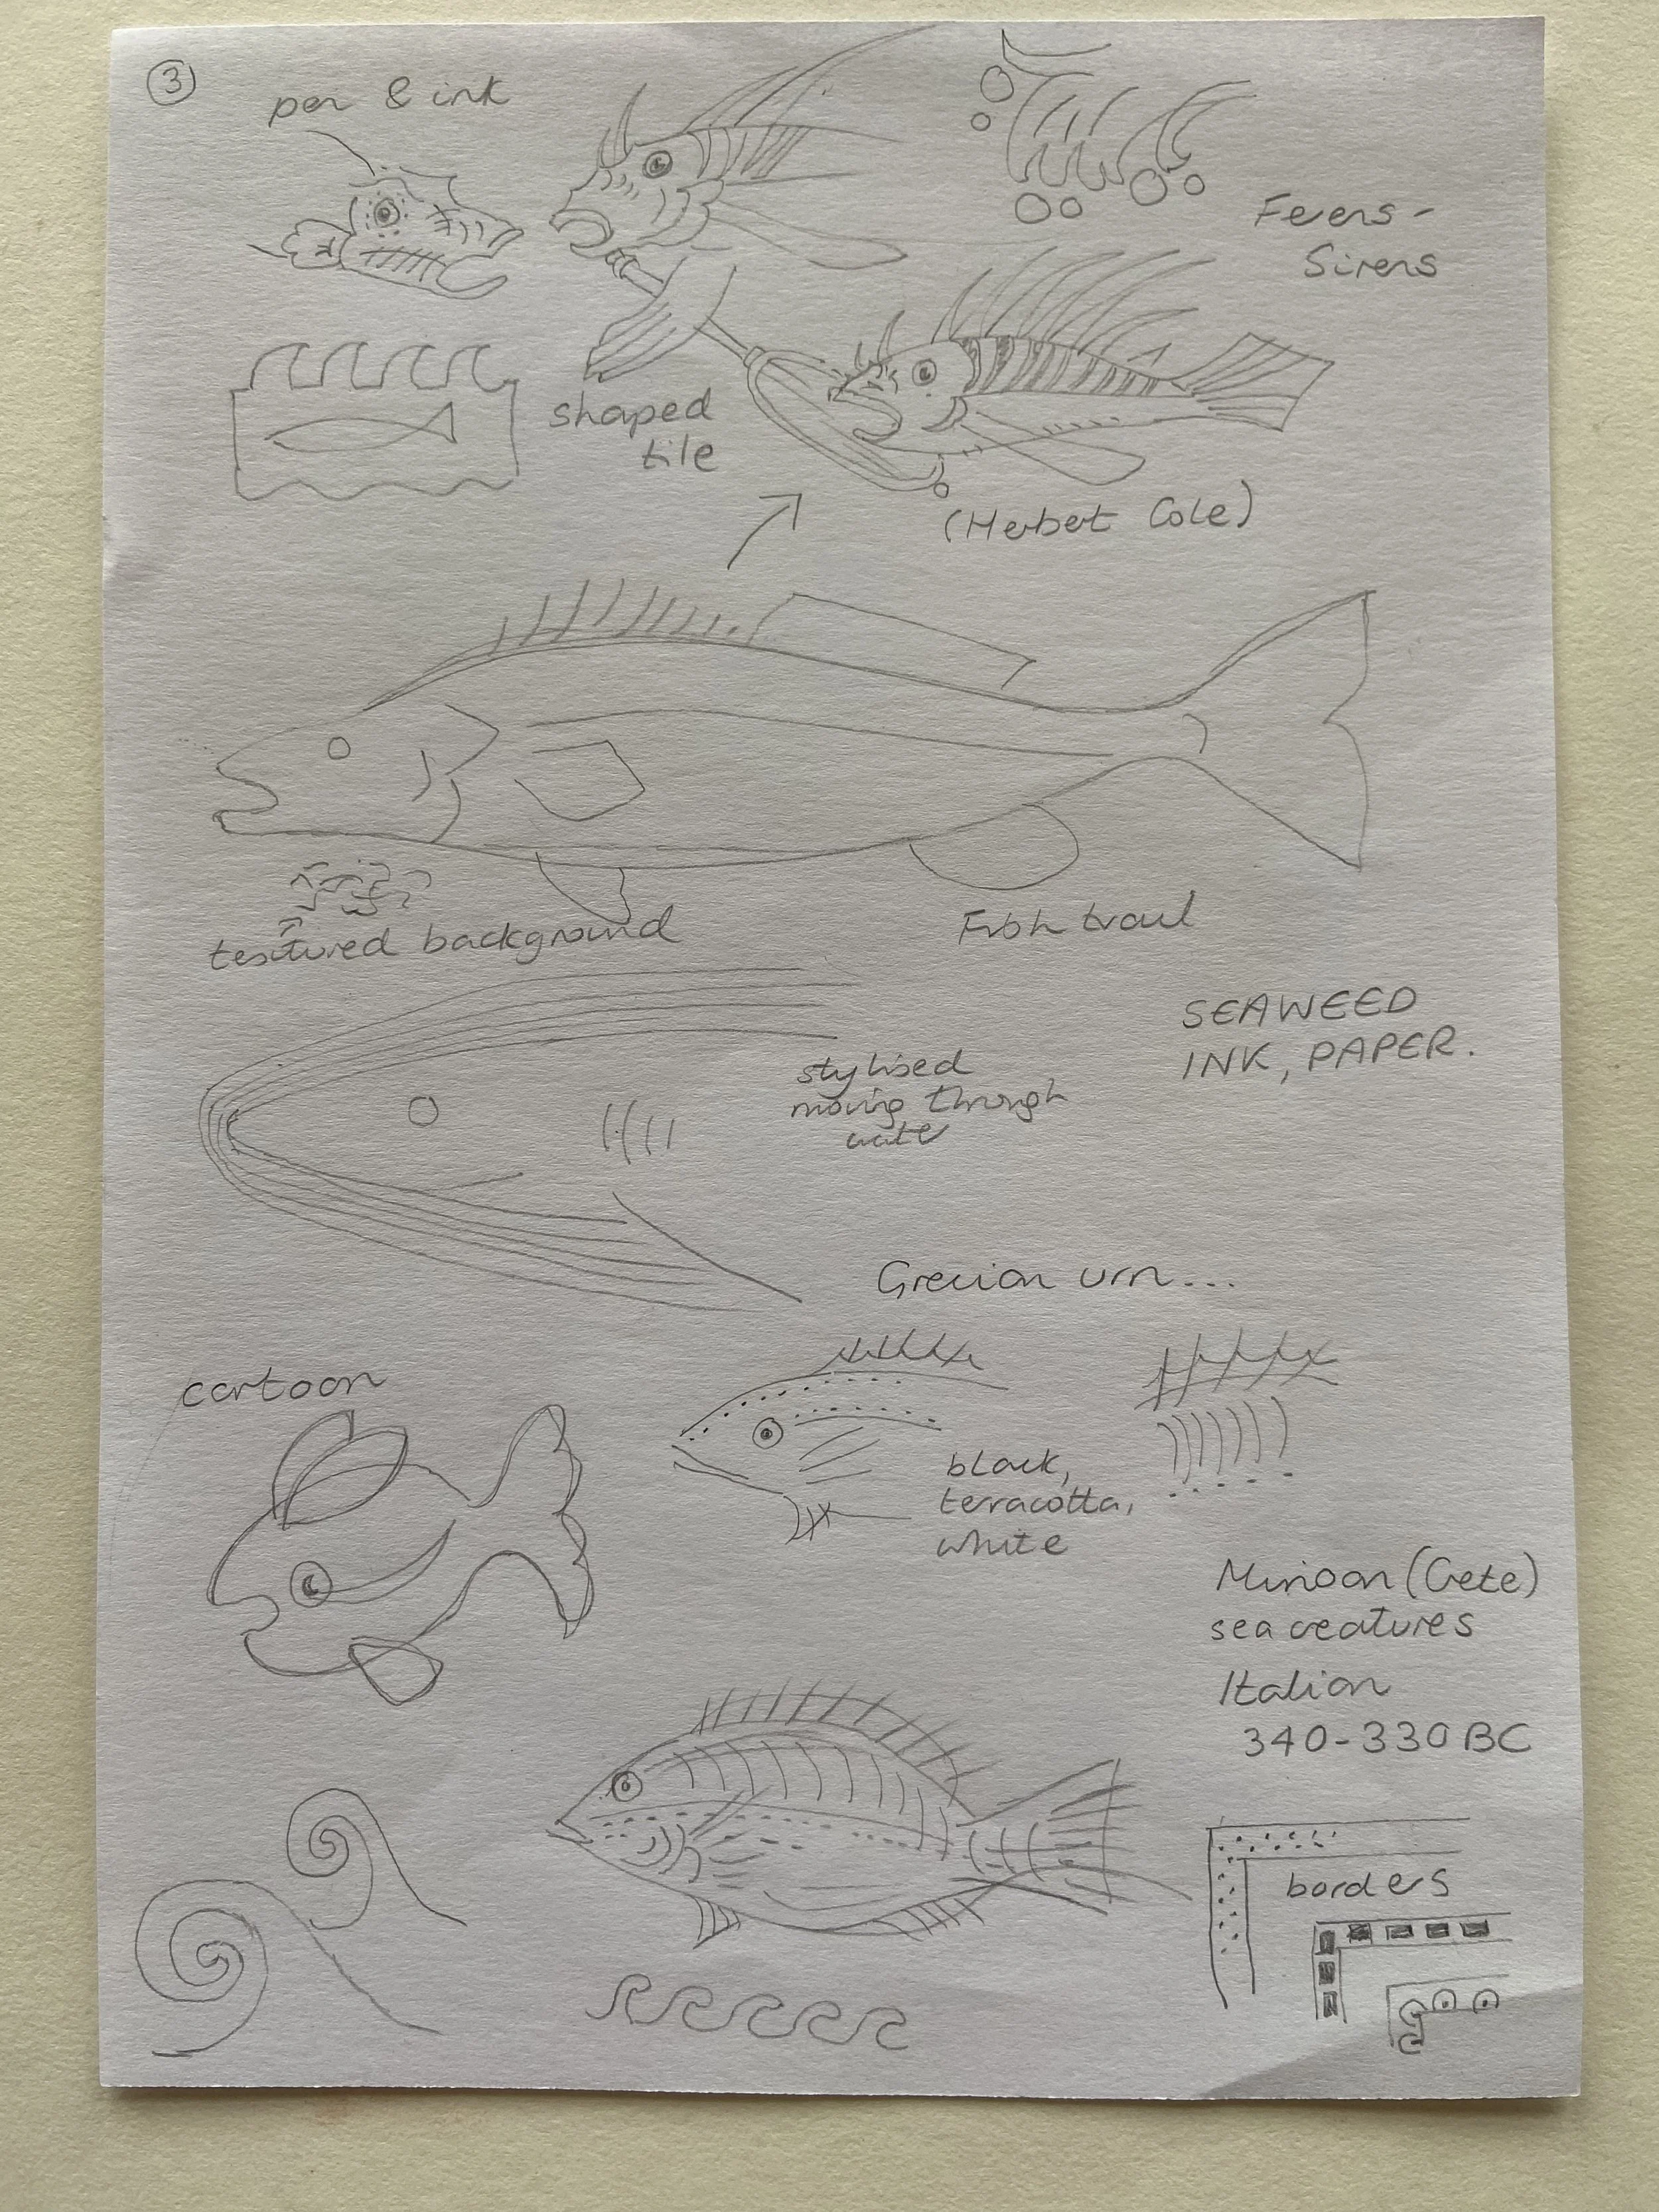 3
pen & ink
Feens -
Sirens
shaped
tile
(Herbet Cole)
textured background
Fish traul
SEAWEED
INK, PAPER.
stylised
moving through
wate
Grecian urn...
cartoon
black,
terracotta,
white
Minoan (Crete)
sea creatures
Italian
340-330 BC
borders